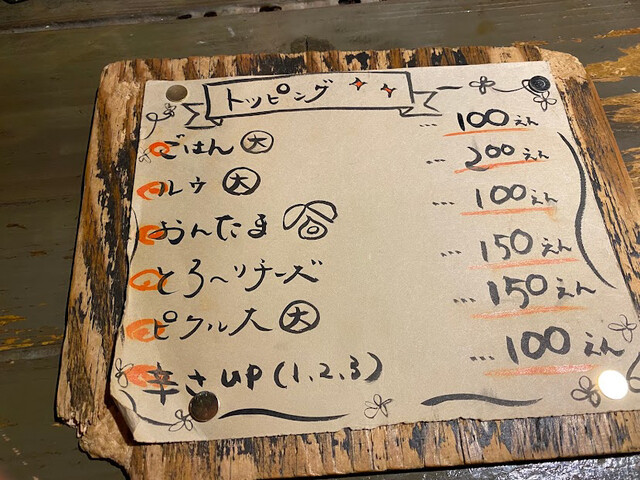 トッピング
ごはん 大 … 100えん
ルウ 大 … 200えん
おんたま … 100えん
とろ～りチーズ … 150えん
ピクルス 大 … 150えん
辛さup(1.2.3) … 100えん